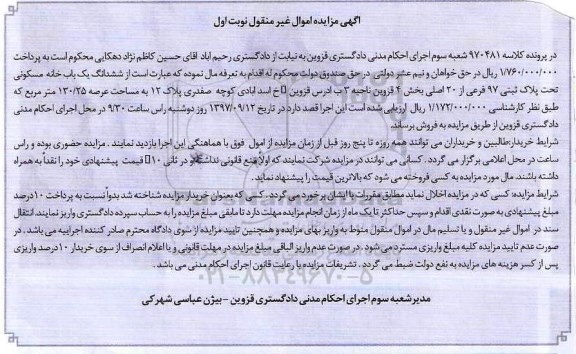 آگهی مزایده اموال غیر منقول نوبت اول
در پرونده کلاسه ۹۷۰۴۸۱ شعبه سوم اجرای احکام مدنی دادگستری قزوین به نیابت از دادگستری رحیم آباد آقای حسین کاظم نژاد دهکایی محکوم است به پرداخت
۱/۷۶۰/۰۰۰/۰۰۰ ریال در حق خواهان و نیم عشر دولتی در حق صندوق دولت محکوم له اقدام به تعرفه مال نموده که عبارت است از ششدانگ یک باب خانه مسکونی
تحت پلاک ثبتی ۹۷ فرعی از ۲۰ اصلی بخش ۴ قزوین ناحیه ۳ ب آدرس قزوین خ اسد آبادی کوچه صفدری پلاک ۱۲ به مساحت عرصه ۱۳۰/۲۵ متر مربع که
طبق نظر کارشناسی ۱/۱۷۲/۰۰۰/۰۰۰ ریال ارزیابی شده است این اجرا قصد دارد در تاریخ ۱۳۹۷/۰۹/۱۲ روز دوشنبه راس ساعت ۹/۳۰ در محل اجرای احکام مدنی
دادگستری قزوین از طریق مزایده به فروش برساند.
شرایط خریدار:طالبین و خریداران می توانند همه روزه تا پنج روز قبل از زمان مزایده از اموال فوق با هماهنگی این اجرا بازدید نمایند . مزایده حضوری بوده و راس
ساعت در محل اعلامی برگزار می گردد . کسانی می توانند در مزایده شرکت نمایند که اولاً منع قانونی نداشته و در ثانی ۱۰ قیمت پیشنهادی خود را نقداً به همراه
داشته باشند. مال مورد مزایده به کسی فروخته می شود که بالاترین قیمت را پیشنهاد نماید .
شرایط مزایده: کسی که در مزایده اخلال نماید مطابق مقررات با ایشان برخورد می گردد . کسی که بعنوان خریدار مزایده شناخته شد بدواً نسبت به پرداخت ۱۰درصد
مبلغ پیشنهادی به صورت نقدی اقدام و سپس حداکثر تا یک ماه از زمان انجام مزایده مهلت دارد تا مابقی مبلغ مزایده را به حساب سپرده دادگستری واریز نمایند. انتقال
سند در اموال غیر منقول و یا تسلیم مال در اموال منقول منوط به واریز بهای مزایده و همچنین تایید مزایده از سوی دادگاه محترم صادر کننده اجراییه می باشد . در
صورت عدم تایید مزایده کلیه مبلغ واریزی مسترد می شود . در صورت عدم واریز الباقی مبلغ مزایده در مهلت قانونی و یا اعلام انصراف از سوی خریدار ۱۰درصد واریزی
پس از کسر هزینه های مزایده به نفع دولت ضبط می گردد . تشریفات مزایده با رعایت قانون اجرای احکام مدنی می باشد .
۰۲۱-۸۸۳۴۹۶۷۰-۵
مدیر شعبه سوم اجرای احکام مدنی دادگستری قزوین - بیژن عباسی شهرکی